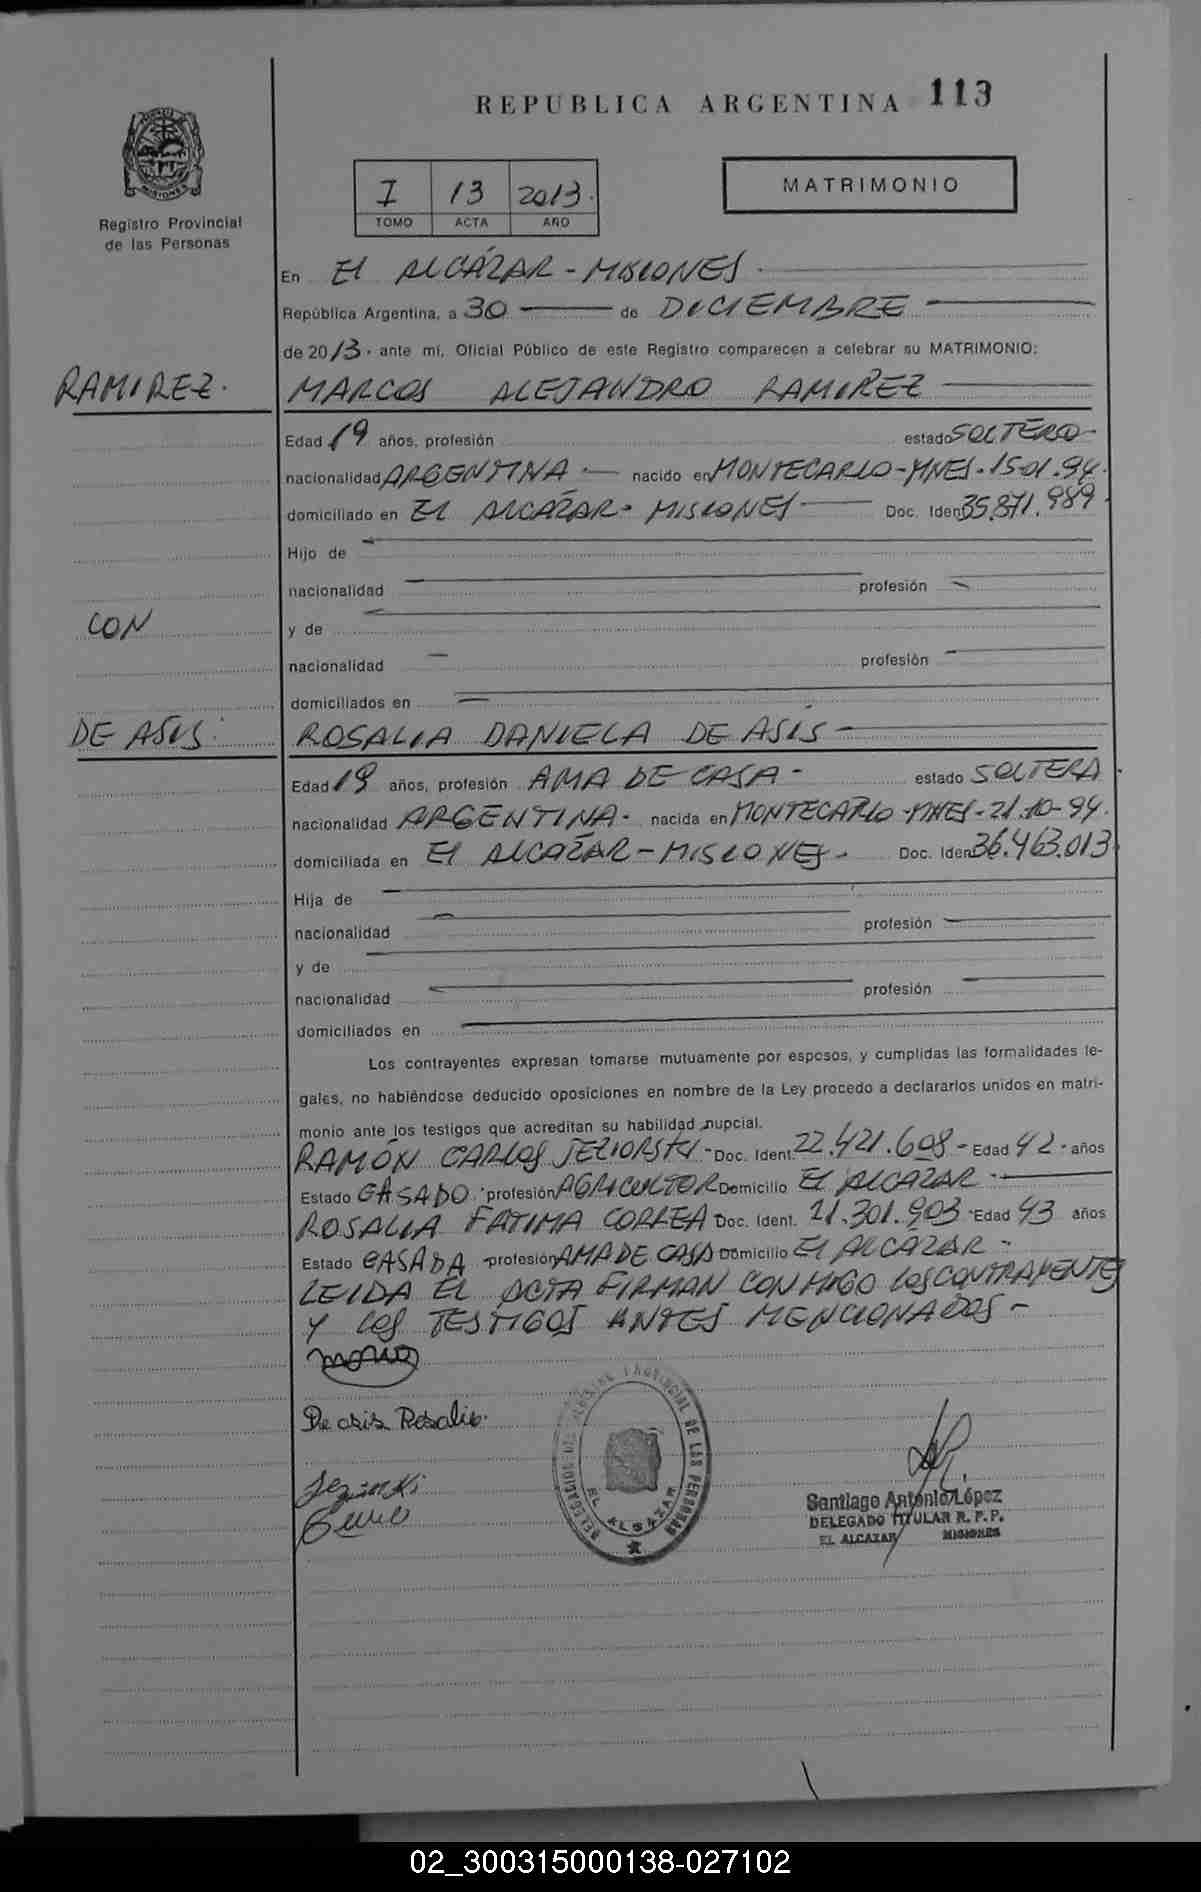 REPUBLICA ARGENTINA 113
MISIONES
Registro Provincial
de las Personas
I 13 2013.
TOMO ACTA AÑO
MATRIMONIO
En El ALCÁZAR - MISIONES
República Argentina, a 30 de DICIEMBRE
de 2013. ante mí, Oficial Público de este Registro comparecen a celebrar su MATRIMONIO:
RAMIREZ. MARCOS ALEJANDRO RAMIREZ
Edad 19 años, profesión estado SOLTERO-
nacionalidad ARGENTINA - nacido en MONTECARLO-MNES-15-01.94.
domiciliado en El ALCÁZAR - MISIONES Doc. Iden 35.871.989.
Hijo de
nacionalidad profesión
CON y de
nacionalidad profesión
domiciliados en
DE ASIS. ROSALIA DANIELA DE ASIS -
Edad 19 años, profesión AMA DE CASA - estado SOLTERA.
nacionalidad ARGENTINA - nacida en MONTECARLO-MNES-21.10-94.
domiciliada en El ALCAZAR - MISIONES - Doc. Iden 36.463.013
Hija de
nacionalidad profesión
y de
nacionalidad profesión
domiciliados en
Los contrayentes expresan tomarse mutuamente por esposos, y cumplidas las formalidades le-
gales, no habiéndose deducido oposiciones en nombre de la Ley procedo a declararlos unidos en matri-
monio ante los testigos que acreditan su habilidad nupcial.
RAMÓN CARLOS JEZIORSKI - Doc. Ident. 22.421.608 - Edad 42 - años
Estado CASADO. profesión AGRICULTOR Domicilio El ALCAZAR -
ROSALIA FATIMA CORREA Doc. Ident. 21.301.903 Edad 43 años
Estado CASADA profesión AMA DE CASA Domicilio El ALCAZAR -
LEIDA EL ACTA FIRMAN CONMIGO LOS CONTRAYENTES
Y LOS TESTIGOS ANTES MENCIONADOS -
De asis Rosalia.
DELEGACION DEL REGISTRO PROVINCIAL DE LAS PERSONAS
EL ALCAZAR
Santiago Antonio López
DELEGADO TITULAR R. P. P.
EL ALCAZAR MISIONES
02_300315000138-027102